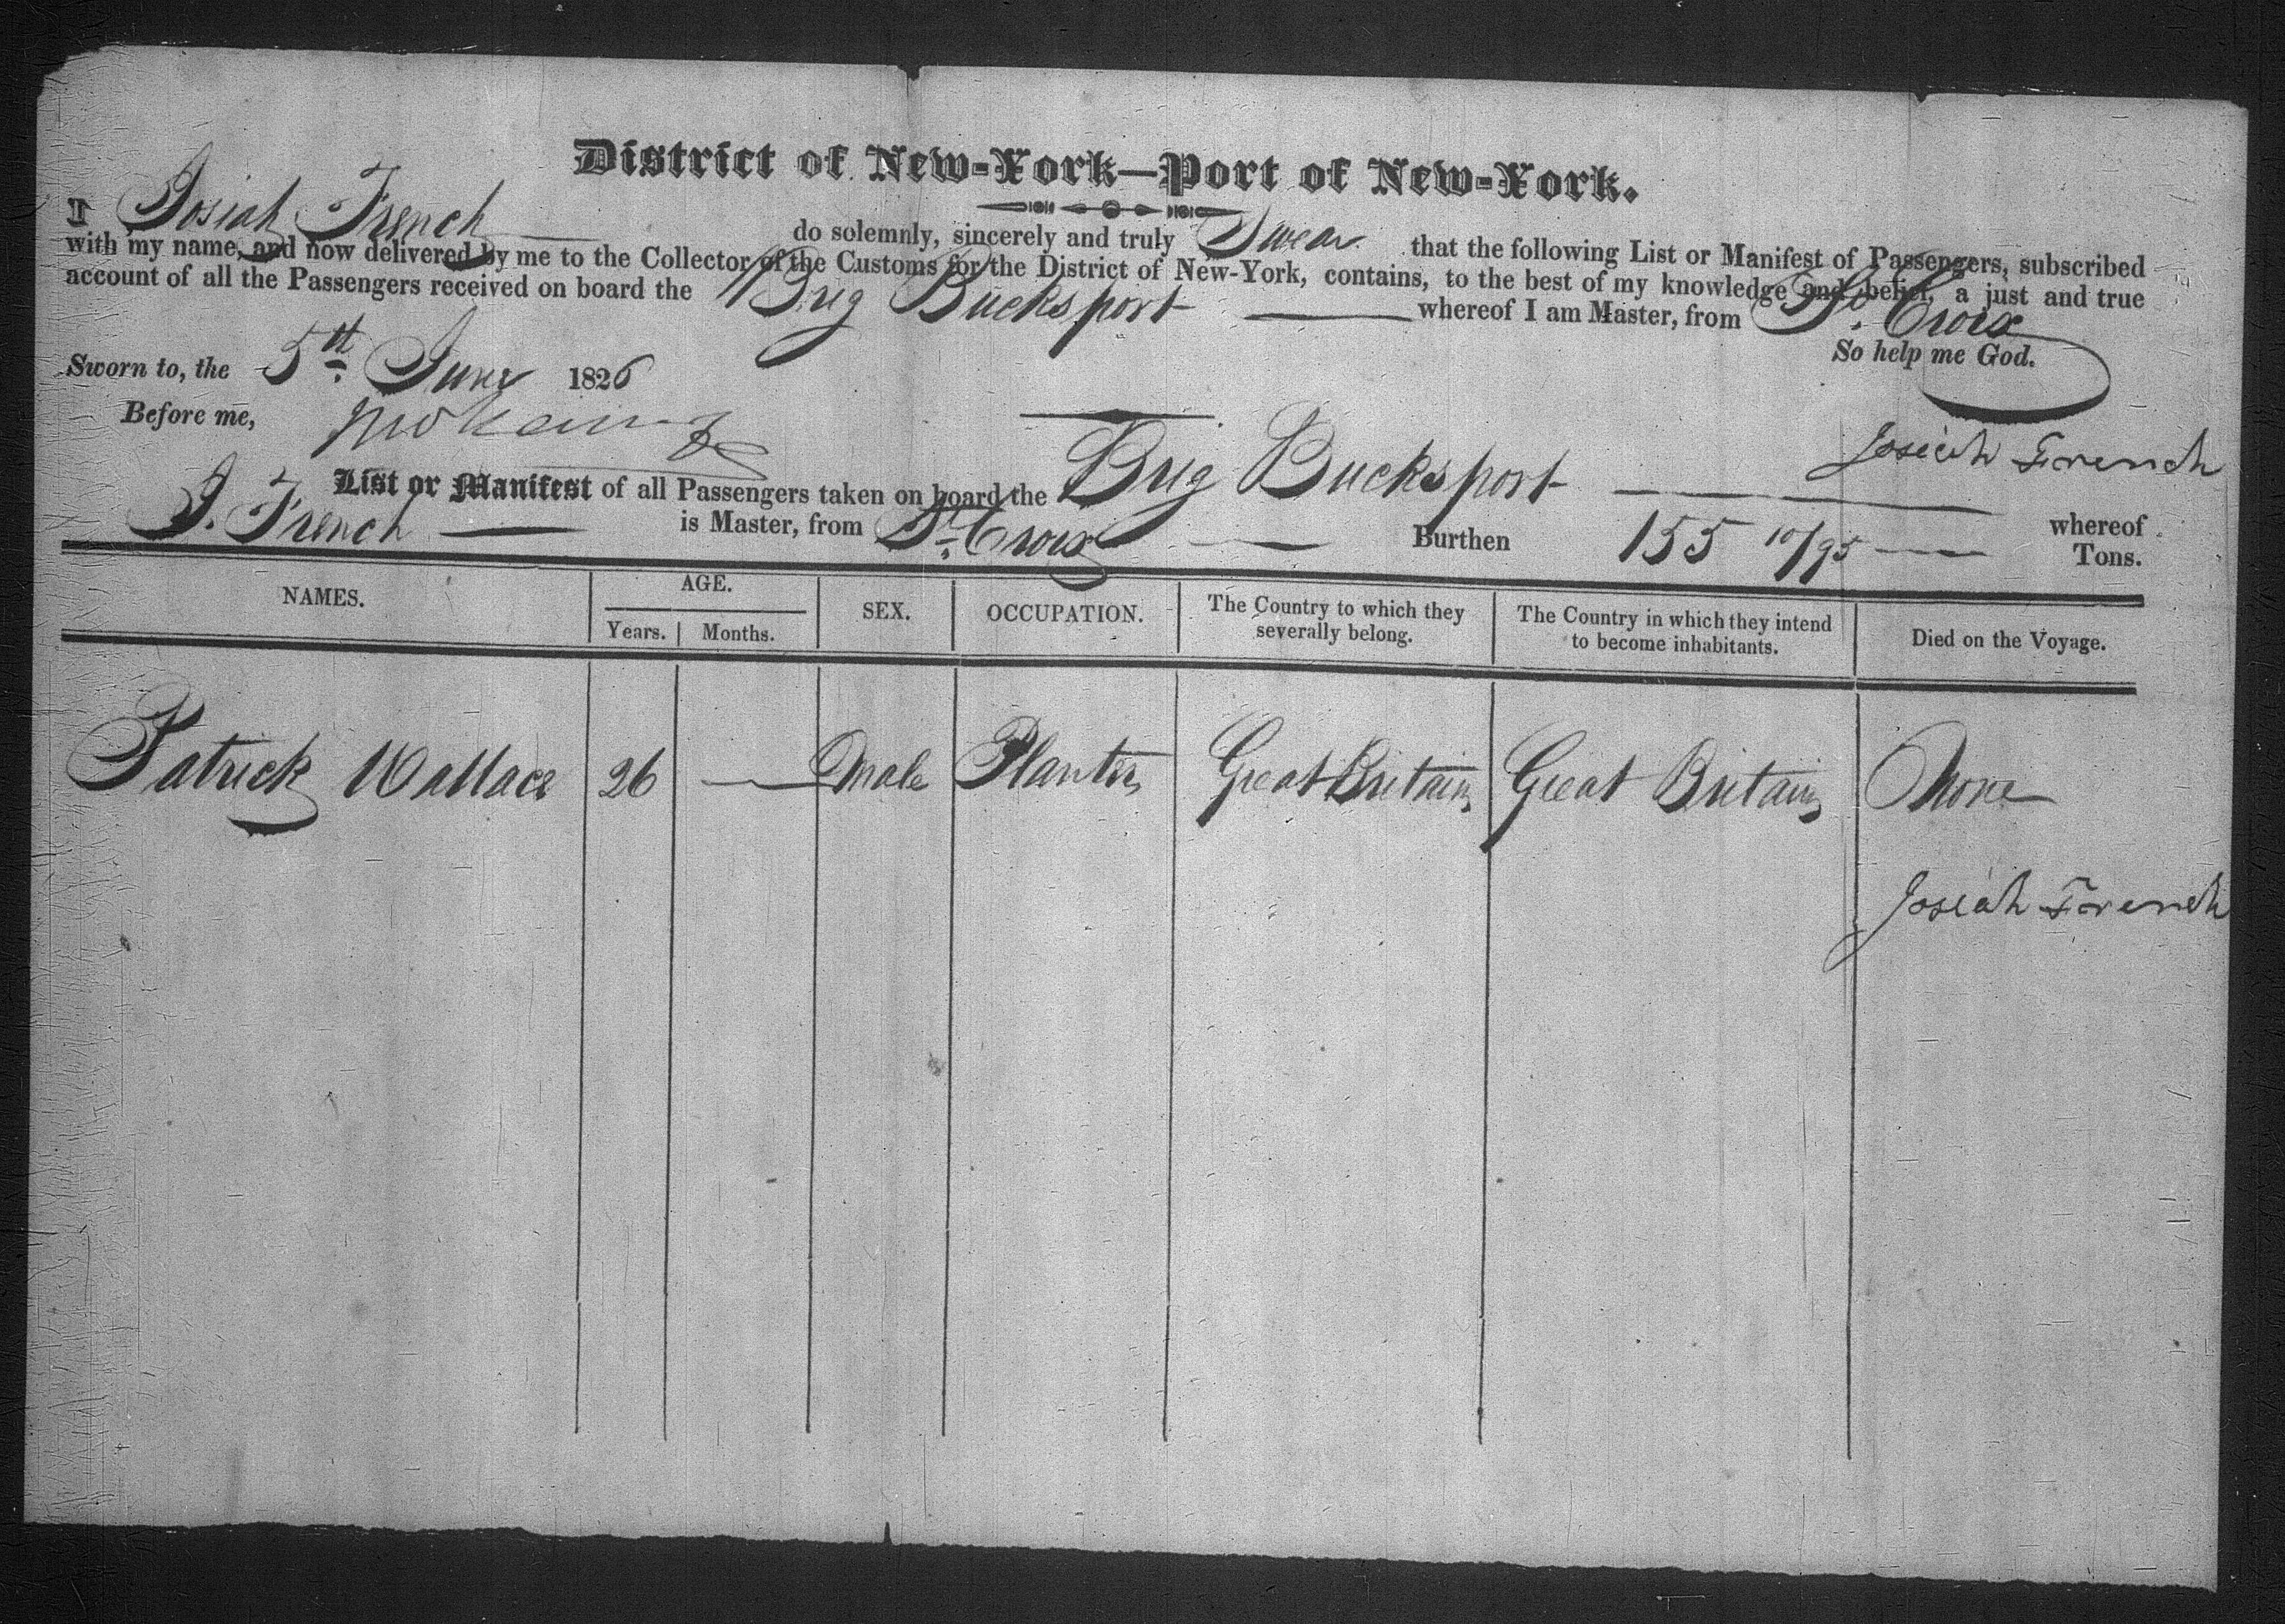 District of New-York—Port of New-York.
I Josiah French do solemnly, sincerely and truly Swear that the following List or Manifest of Passengers, subscribed
with my name, and now delivered by me to the Collector of the Customs for the District of New-York, contains, to the best of my knowledge and belief, a just and true
account of all the Passengers received on board the Brig Bucksport whereof I am Master, from St. Croix
So help me God.
Sworn to, the 5th June 1826
Before me,
Josiah French
List or Manifest of all Passengers taken on board the Brig Bucksport whereof
J. French is Master, from St. Croix Burthen 155 10/95 Tons.
NAMES. AGE. SEX. OCCUPATION. The Country to which they severally belong. The Country in which they intend to become inhabitants. Died on the Voyage.
Years. Months.
Patrick Wallace 26 — Male Planter Great Britain Great Britain None
Josiah French